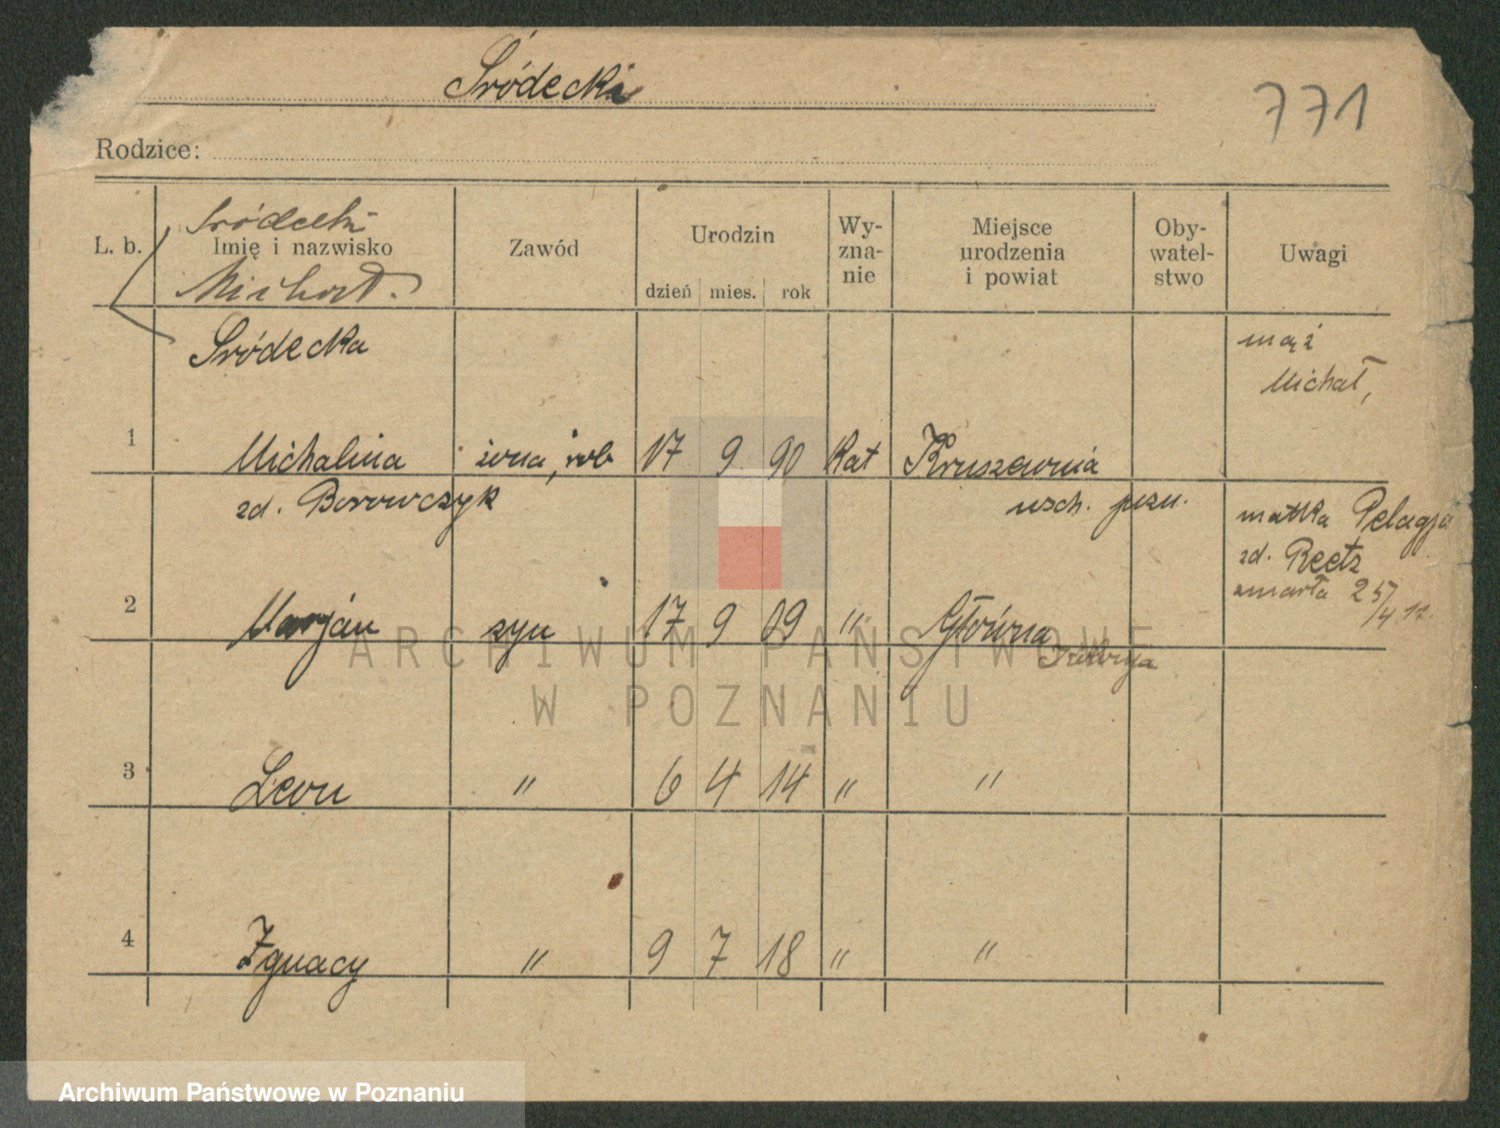 Śródecki
771
Rodzice:
L. b.
Śródecki
Imię i nazwisko
Michał.
Zawód
Urodzin
dzień mies. rok
Wy-
zna-
nie
Miejsce
urodzenia
i powiat
Oby-
watel-
stwo
Uwagi
Śródecka
mąż
Michał,
1 Michalina żona, rob 17 9 90 Kat Kruszewnia
zd. Borowczyk wsch. pozn.
matka Pelagja
zd. Reetz
zmarła 25/4 12.
2 Marjan syn 17 9 09 " Główna
3 Leon " 6 4 14 " "
4 Ignacy " 9 7 18 " "
ARCHIWUM PAŃSTWOWE
W POZNANIU
Archiwum Państwowe w Poznaniu